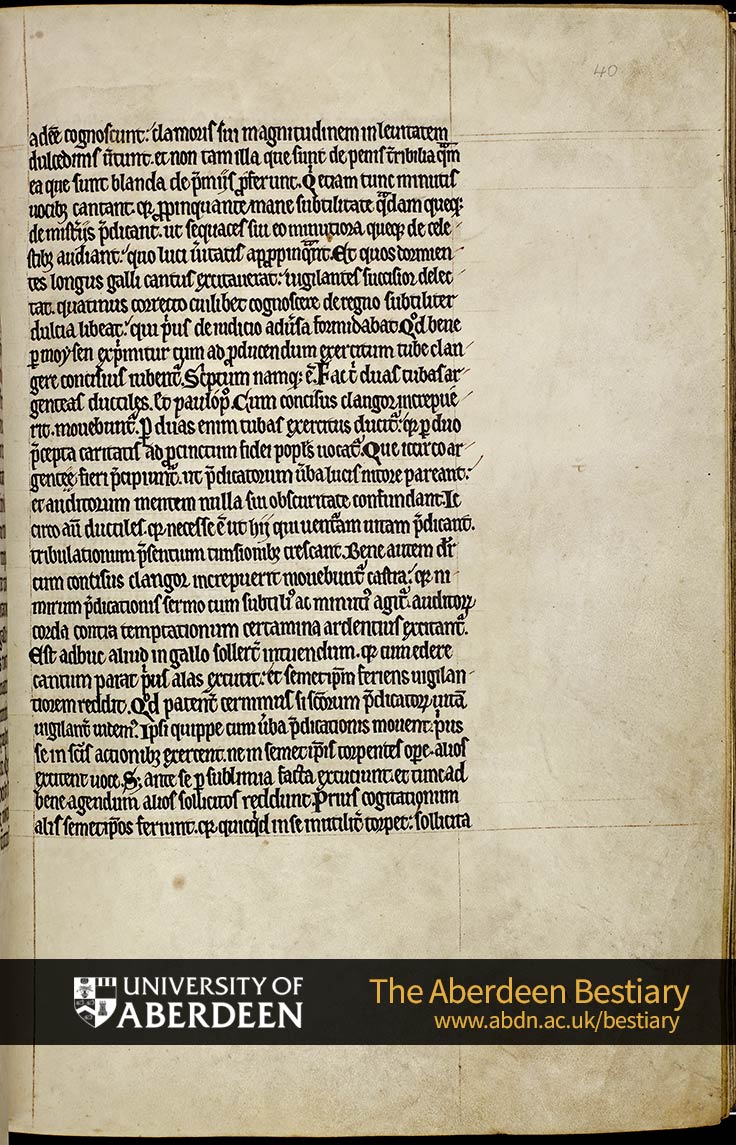 40
adeē cognoscunt: clamoris sui magnitudinem in leuitatem
dulcedinis ūtunt. et non tam illa que sunt de penis t̄ribilia qͣm
ea que sunt blanda de p̄mijs ꝓferunt. Q̇ etiam tunc minutis
uocibꝫ cantant. qꝛ ꝓpinquante mane subtilitate qͣdam queqꝫ
de mist̄ijs p̄dicant. ut sequaces sui eo minutiora queqꝫ de cele
stibꝫ audiant: quo luci ūitatis appꝓpinqͣnt. Et quos dormien
tes longus galli cantus excitauerat: uigilantes succisior delec
tat. quatinus correcto cuilibet cognoscere de regno subtiliter
dulcia libeat: qui pͥus de iudicio adūsa formidabat. Qͦd bene
ꝑ moysen exp̄mitur cum ad ꝓducendum exercitum tube clan
gere concisius iubent᷑. Sc̄ptum namqꝫ ē. Fac tͥ duas tubas ar
genteas ductiles. Et paulo pͦ. Cum concisus clangor increpue
rit. mouebunt᷑. ꝑ duas enim tubas exercitus ducit᷑: qꝛ ꝑ duo
p̄cepta caritatis ad ꝓcinctum fidei popl̄s uocat᷑. Que iccirco ar
gentee fieri p̄cipiunt᷑. ut p̄dicatorum ūba lucis nitore pareant:
et auditorum mentem nulla sui obscuritate confundant. Ic
circo aū ductiles. qꝛ necesse ē ut hij qui uent᷑am uitam p̄dicant.
tribulationum p̄sentium tunsionibꝫ crescant. Bene autem dr̄
cum concisus clangor increpuerit mouebunt᷑ castra: qꝛ ni
mirum p̄dicationis sermo cum subtiliꝰ ac minutiꝰ agit᷑. auditoꝝ
corda contra temptationum certamina ardentius excitant᷑.
Est adhuc aliud in gallo sollert᷑ intuendum. qꝛ cum edere
cantum parat pͥus alas excutit: et semetip̄m feriens uigilan
tiorem reddit. Qͦd patent᷑ cernimus si sc̄orum p̄dicatoꝝ uitā
uigilant᷑ uidemꝰ. Ipsi quippe cum ūba p̄dicationis mouent. pͥus
se in sc̄is actionibꝫ exercent. ne in semetip̄is torpentes ope. alios
excitent uoce. Sꝫ ante se ꝑ sublimia facta excutiunt. et tunc ad
bene agendum alios sollicitos reddunt. Prius cogitationum
alis semetip̄os feriunt. qꝛ quicqͥd in se inutilit᷑ torpet: sollicita
UNIVERSITY OF
ABERDEEN
The Aberdeen Bestiary
www.abdn.ac.uk/bestiary